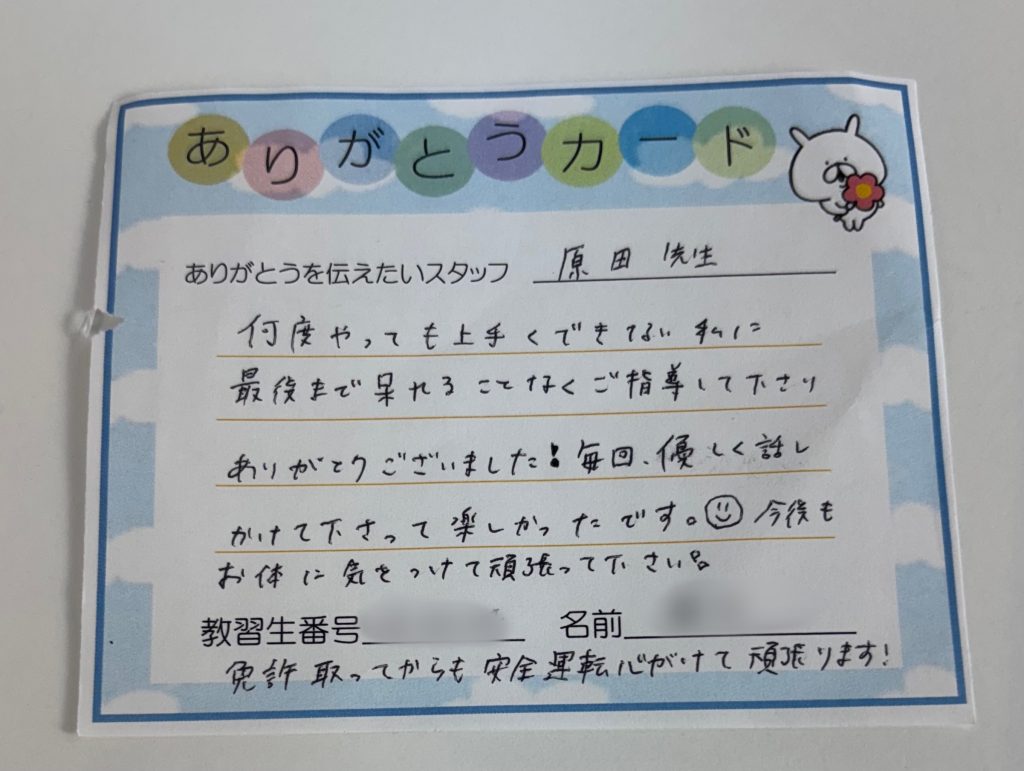 ありがとうカード
ありがとうを伝えたいスタッフ 原田先生
何度やっても上手くできない私に
最後まで呆れることなくご指導して下さり
ありがとうございました!毎回、優しく話し
かけて下さって楽しかったです。今後も
お体に気をつけて頑張って下さい。
教習生番号 名前
免許取ってからも安全運転心がけて頑張ります!